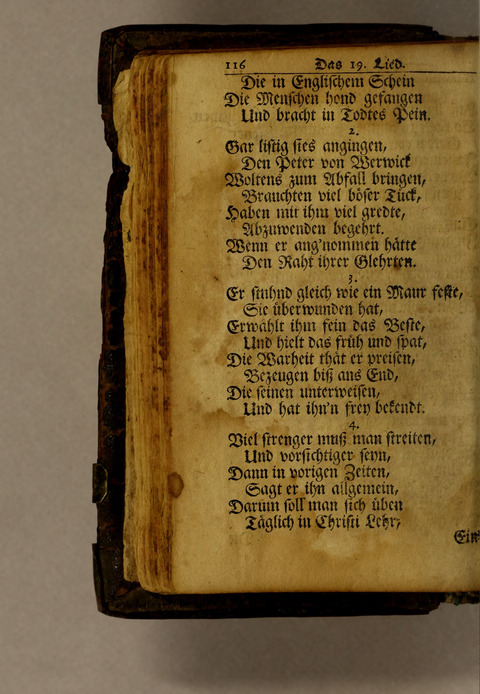 116 Das 19. Lied.
Die in Englischem Schein
Die Menschen hond gefangen
Und bracht in Todtes Pein.
2.
Gar listig sies angingen,
Den Peter von Werwick
Woltens zum Abfall bringen,
Brauchten viel böser Tück,
Haben mit ihm viel gredte,
Abzuwenden begehrt.
Wenn er ang'nommen hätte
Den Raht ihrer Glehrten.
3.
Er stuhnd gleich wie ein Maur feste,
Sie überwunden hat,
Erwählt ihm fein das Beste,
Und hielt das früh und spat,
Die Warheit thät er preisen,
Bezeugen biß ans End,
Die seinen unterweisen,
Und hat ihn'n frey bekendt.
4.
Viel strenger muß man streiten,
Und vorsichtiger seyn,
Dann in vorigen Zeiten,
Sagt er ihn allgemein,
Darum soll man sich üben
Täglich in Christi Lehr,
Ein